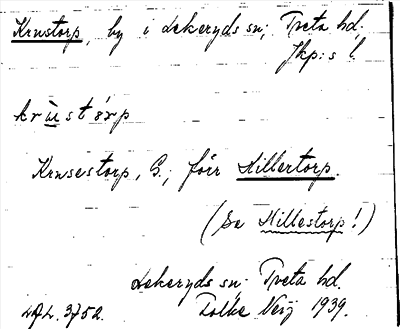 Krustorp, by i Lekeryds sn; Tveta hd.
Jkp:s l.
krùstórp
Krusestorp, G.; förr Killertorp.
(Se Killestorp!)
Lekeryds sn. Tveta hd.
Tolke Neij 1939.